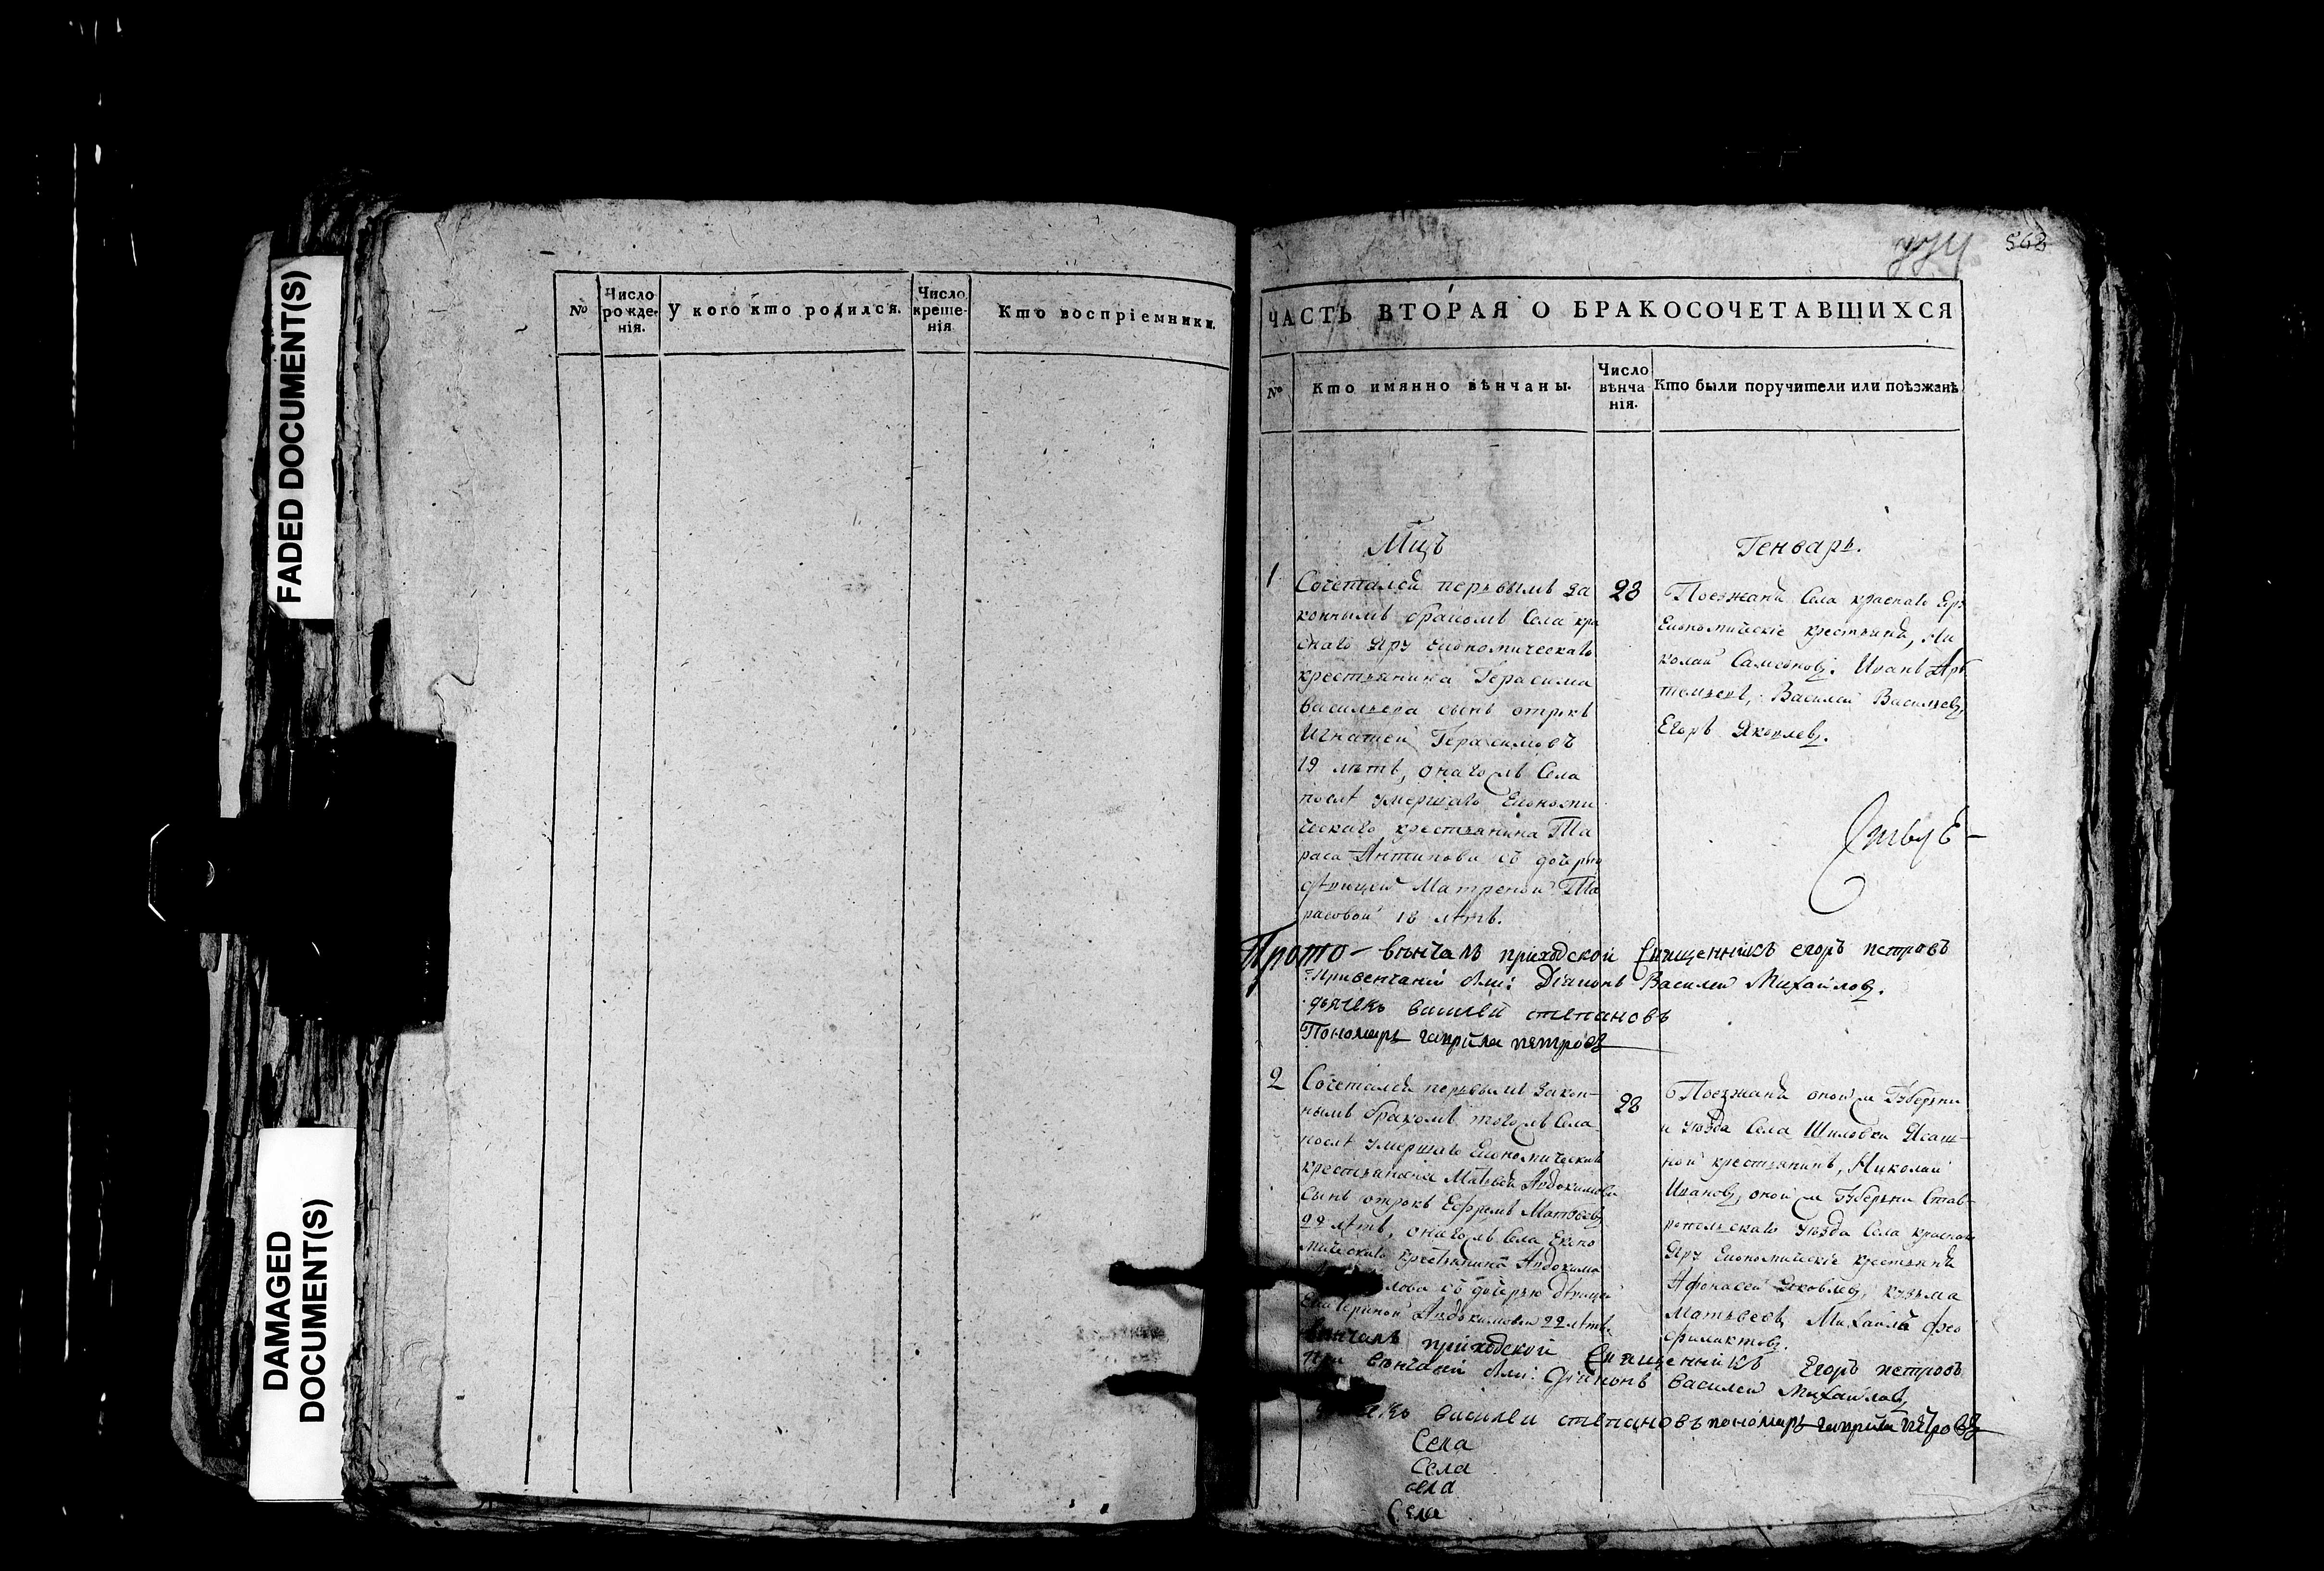 FADED DOCUMENT(S)
DAMAGED
DOCUMENT(S)
№
Число
рожде-
нія.
У кого кто родился.
Число
креще-
нія
Кто воспріемники.
568
ЧАСТЬ ВТОРАЯ О БРАКОСОЧЕТАВШИХСЯ
№
Кто имянно вѣнчаны.
Число
вѣнча
нія.
Кто были поручители или поѣзжанѣ
Мцъ
Генварь.
1
Сочетался первымъ за
коннымъ бракомъ Села кра
снаго Яру Економическаго
крестьянина Герасима
Васильева сынъ отрокъ
Игнатей Герасимовъ
19 лѣтъ, онагожъ Села
послѣ умершаго Економи
ческаго крестьянина Та
раса Антипова съ дочерью
дѣвицей Матреной Та
расовой 18 лѣтъ.
23
Поезжаня Села краснаго Яру
Економическіе крестьяня, Ни
колай Самсонов: Иванъ Ар
темьевъ, Василей Васильев,
Егоръ Яковлев.
Прото - вѣнчалъ приходской Священникъ егоръ петровъ
При венчаніи были: Діаконъ Василей Михайлов.
дьячекъ василей степановъ
Пономарь гаврила петров
2
Сочетался первымъ закон-
нымъ бракомъ тогожъ Села
послѣ умершаго Економическаго
крестьянина Матвея Авдокимова
сынъ отрокъ Ефремъ Матвеев
22 лѣтъ, онагожъ Села Еконо
мическаго крестьянина Авдокима
лова съ дочерью дѣвицей
Екатериной Авдокимовой 22 лѣтъ.
28
Поезжаня оной ж Губерніи
и уѣзда Села Шиловки Ясаш-
ной крестьянинъ, Николай
Иванов, оной ж Губерніи Став-
ропольскаго уѣзда Села краснаго
Яру Економическіе крестьяня
Афонасей Яковлев, кузьма
Матвеев, Михайла фео
филактов.
вѣнчалъ приходской Священникъ Егоръ петровъ
При вѣнчаніи были: діаконъ Василей Михайлов,
василеи степановъ пономарь гаврила петров
Села
Села
села
Села